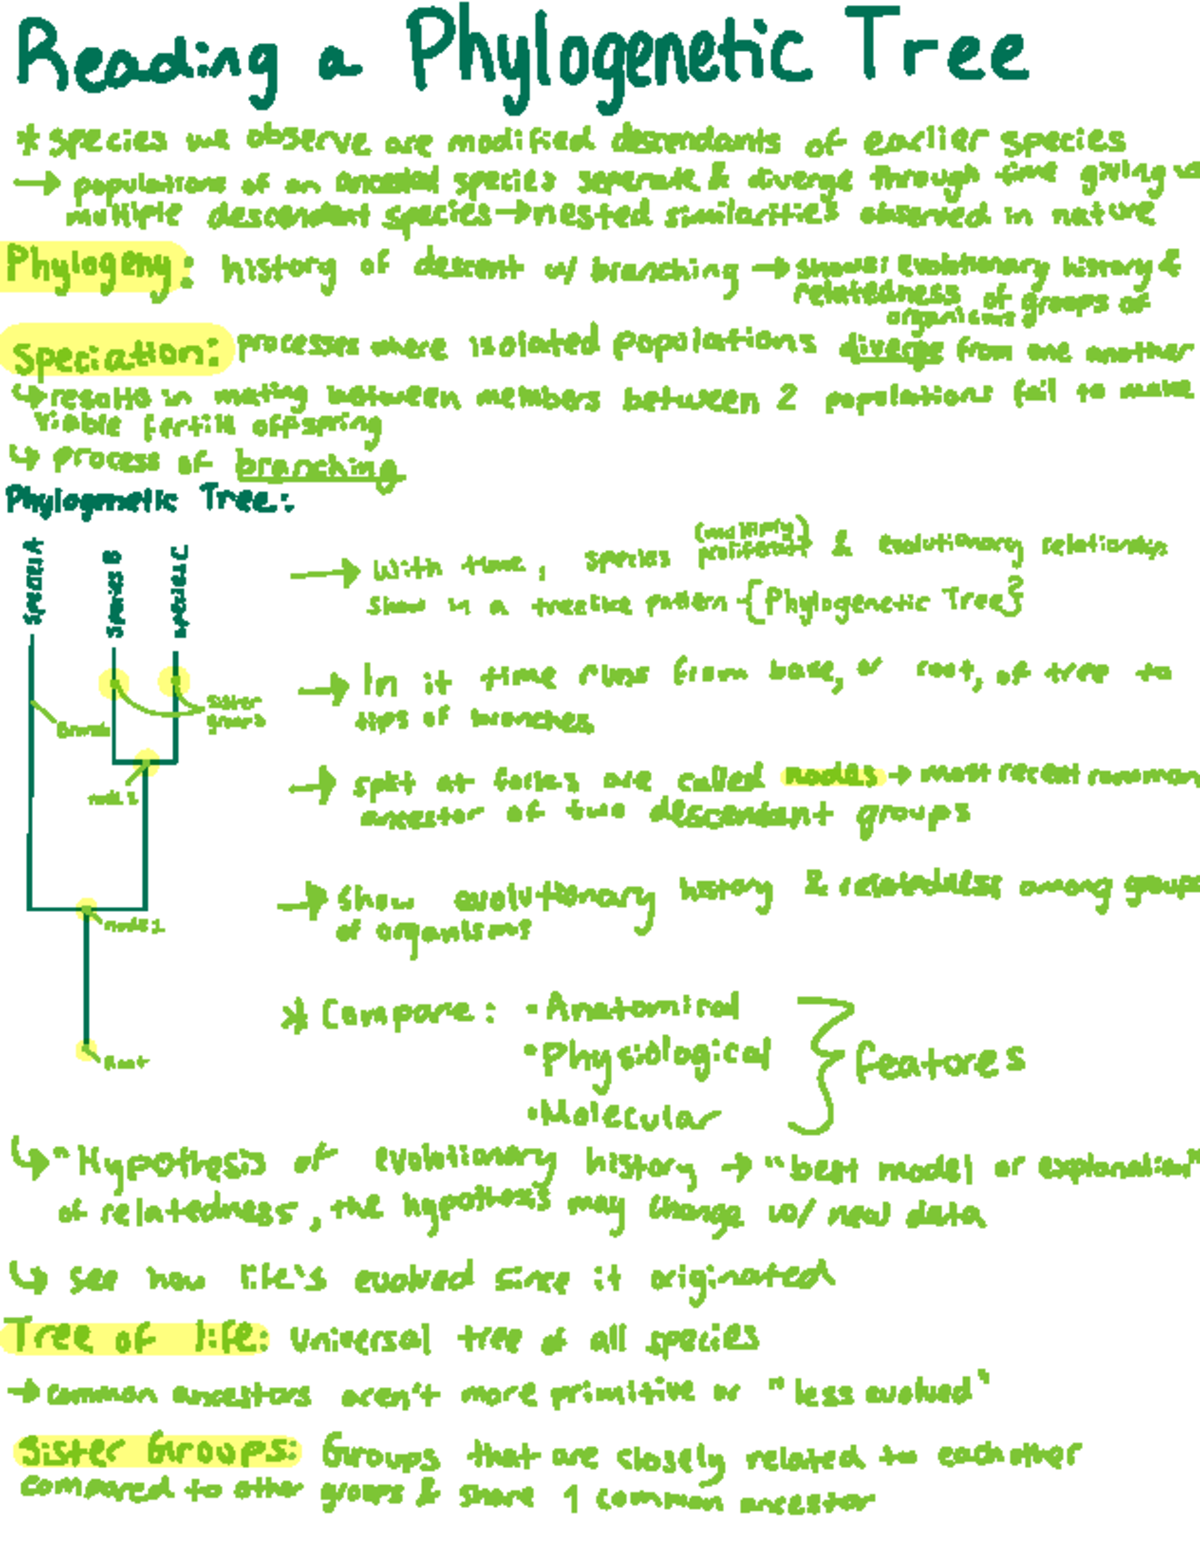 Reading a Phylogenetic Tree
* species we observe are modified descendants of earlier species
→ populations of an ancestral species separate & diverge through time giving
multiple descendent species → nested similarities observed in nature
Phylogeny: history of descent w/ branching → shows: evolutionary history &
relatedness of groups of
organisms
Speciation: processes where isolated populations diverge from one another
↳ results in mating between members between 2 populations fail to make
viable fertile offspring
↳ process of branching
Phylogenetic Tree:
Species A
Species B
Species C
Branch
Sister
groups
node 2
node 1
Root
→ With time, species (multiply) proliferate & evolutionary relationship
show in a treelike pattern {Phylogenetic Tree}
→ In it time runs from base, or root, of tree to
tips of branches
→ split at forks are called nodes → most recent common
ancestor of two descendant groups
→ Show evolutionary history & relatedness among groups
of organisms
* Compare: • Anatomical
• Physiological
• Molecular
} features
↳ "Hypothesis of evolutionary history → "best model or explanation"
of relatedness, the hypothesis may change w/ new data
↳ see how life's evolved since it originated
Tree of life: Universal tree of all species
→ common ancestors aren't more primitive or "less evolved"
Sister Groups: Groups that are closely related to each other
compared to other groups & share 1 common ancestor